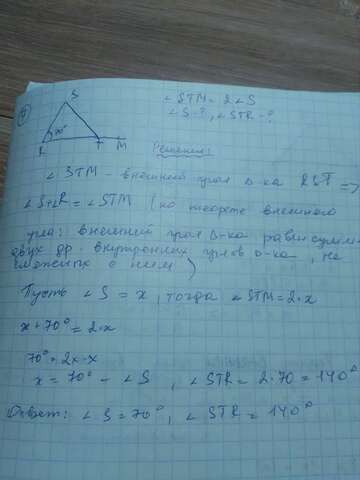 S
∠STM = 2∠S
∠S-?, ∠STR-?
70°
R T M
Решение:
∠STM - внешний угол Δ-ка RST =>
∠S+∠R = ∠STM (по теореме внешнего
угла: внешний угол Δ-ка равен сумме
двух др. внутренних углов Δ-ка, не
смежных с ним)
Пусть ∠S = x, тогда ∠STM = 2·x
x + 70° = 2·x
70° = 2x - x
x = 70° - ∠S, ∠STR = 2·70 = 140°
Ответ: ∠S = 70°, ∠STR = 140°